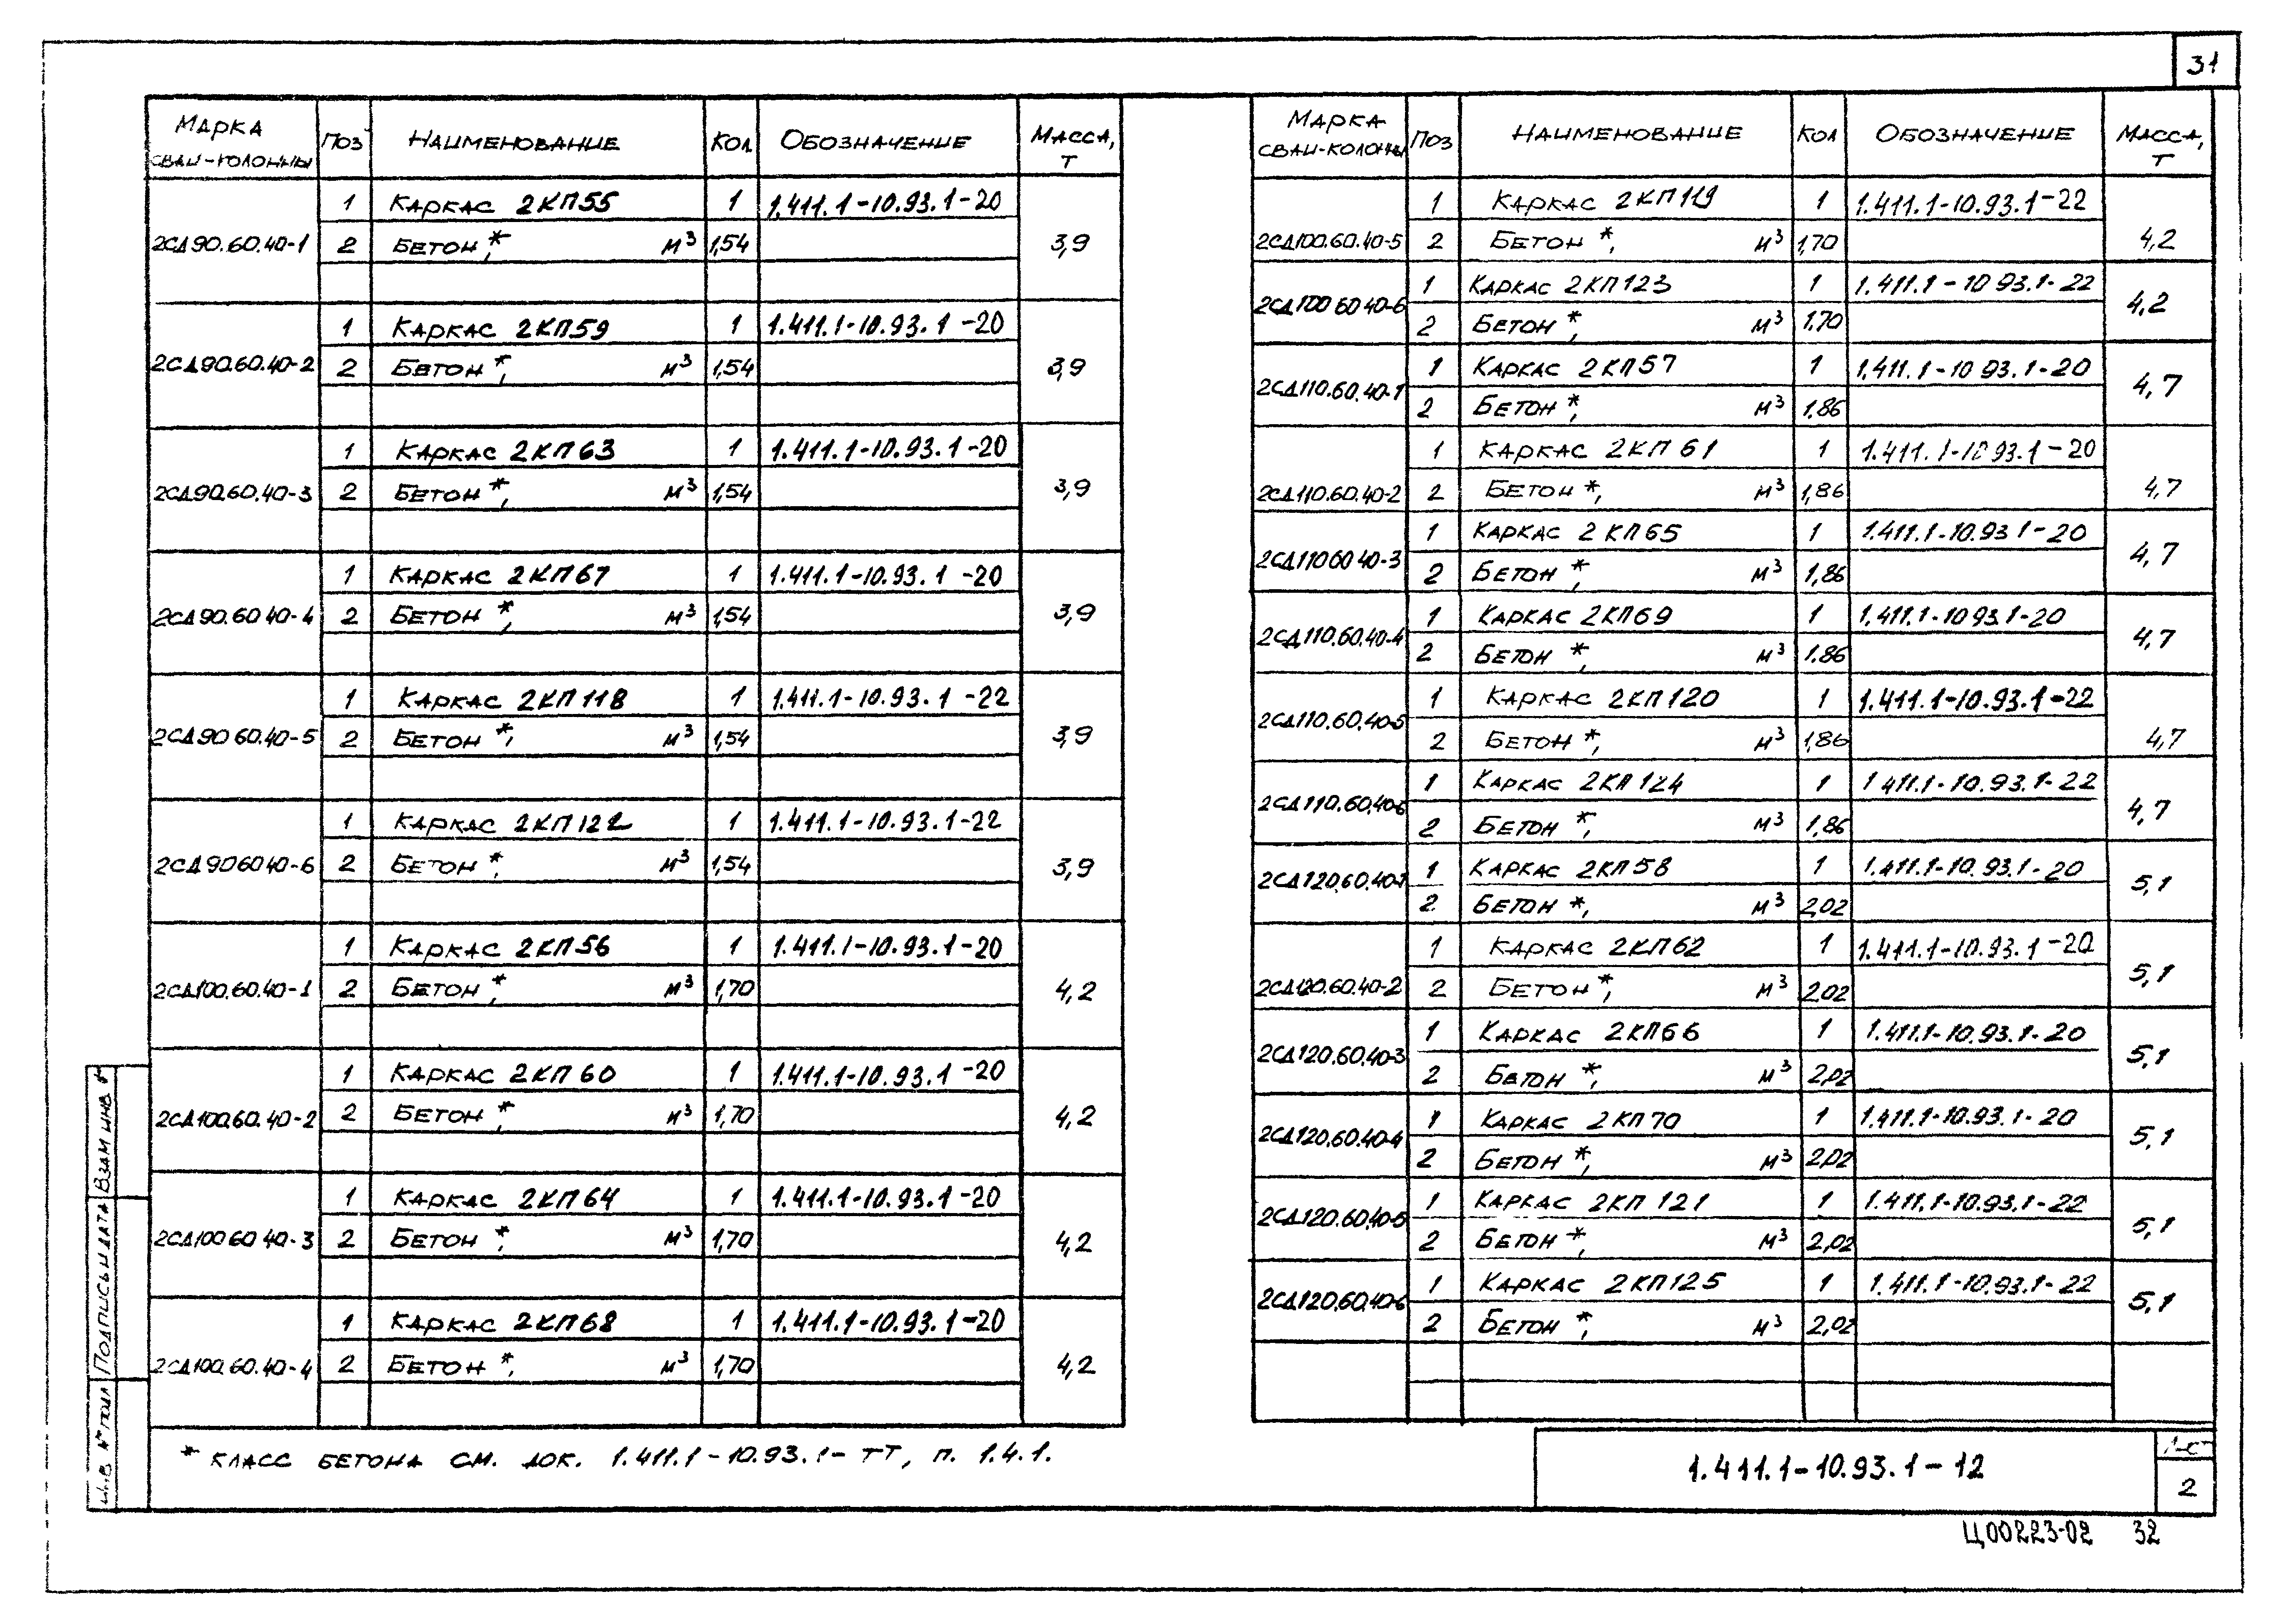 31
МАРКА СВАИ-КОЛОННЫ ПОЗ НАИМЕНОВАНИЕ КОЛ ОБОЗНАЧЕНИЕ МАССА, Т
2СД90.60.40-1 1 КАРКАС 2КП55 1 1.411.1-10.93.1-20 3,9
2 БЕТОН*, М³ 1,54
2СД90.60.40-2 1 КАРКАС 2КП59 1 1.411.1-10.93.1-20 3,9
2 БЕТОН*, М³ 1,54
2СД90.60.40-3 1 КАРКАС 2КП63 1 1.411.1-10.93.1-20 3,9
2 БЕТОН*, М³ 1,54
2СД90.60 40-4 1 КАРКАС 2КП67 1 1.411.1-10.93.1-20 3,9
2 БЕТОН*, М³ 1,54
2СД90 60.40-5 1 КАРКАС 2КП118 1 1.411.1-10.93.1-22 3,9
2 БЕТОН*, М³ 1,54
2СД906040-6 1 КАРКАС 2КП122 1 1.411.1-10.93.1-22 3,9
2 БЕТОН*, М³ 1,54
2СД100.60.40-1 1 КАРКАС 2КП56 1 1.411.1-10.93.1-20 4,2
2 БЕТОН*, М³ 1,70
2СД100.60.40-2 1 КАРКАС 2КП60 1 1.411.1-10.93.1-20 4,2
2 БЕТОН*, М³ 1,70
2СД100 60 40-3 1 КАРКАС 2КП64 1 1.411.1-10.93.1-20 4,2
2 БЕТОН*, М³ 1,70
2СД100.60.40-4 1 КАРКАС 2КП68 1 1.411.1-10.93.1-20 4,2
2 БЕТОН*, М³ 1,70
МАРКА СВАИ-КОЛОННЫ ПОЗ НАИМЕНОВАНИЕ КОЛ ОБОЗНАЧЕНИЕ МАССА, Т
2СД100.60.40-5 1 КАРКАС 2КП119 1 1.411.1-10.93.1-22 4,2
2 БЕТОН*, М³ 1,70
2СД100 60 40-6 1 КАРКАС 2КП123 1 1.411.1-10 93.1-22 4,2
2 БЕТОН*, М³ 1.70
2СД110.60.40-1 1 КАРКАС 2КП57 1 1.411.1-10 93.1-20 4,7
2 БЕТОН*, М³ 1,86
2СД110.60.40-2 1 КАРКАС 2КП61 1 1.411.1-10 93.1-20 4,7
2 БЕТОН*, М³ 1,86
2СД110 60 40-3 1 КАРКАС 2КП65 1 1.411.1-10.93 1-20 4,7
2 БЕТОН*, М³ 1,86
2СД110.60.40-4 1 КАРКАС 2КП69 1 1.411.1-10 93.1-20 4,7
2 БЕТОН*, М³ 1.86
2СД110.60.40-5 1 КАРКАС 2КП120 1 1.411.1-10.93.1-22 4,7
2 БЕТОН*, М³ 1,86
2СД110.60.40-6 1 КАРКАС 2КП124 1 1 411.1-10.93.1-22 4,7
2 БЕТОН*, М³ 1,86
2СД120.60.40-1 1 КАРКАС 2КП58 1 1.411.1-10.93.1-20 5,1
2 БЕТОН*, М³ 2,02
2СД120.60.40-2 1 КАРКАС 2КП62 1 1.411.1-10.93.1-20 5,1
2 БЕТОН*, М³ 2,02
2СД120.60.40-3 1 КАРКАС 2КП66 1 1.411.1-10.93.1-20 5,1
2 БЕТОН*, М³ 2,02
2СД120.60.40-4 1 КАРКАС 2КП70 1 1.411.1-10.93.1-20 5,1
2 БЕТОН*, М³ 2,02
2СД120.60.40-5 1 КАРКАС 2КП121 1 1.411.1-10.93.1-22 5,1
2 БЕТОН*, М³ 2,02
2СД120.60.40-6 1 КАРКАС 2КП125 1 1.411.1-10.93.1-22 5,1
2 БЕТОН*, М³ 2,02
* КЛАСС БЕТОНА СМ. ДОК. 1.411.1-10.93.1-ТТ, П. 1.4.1.
1.411.1-10.93.1-12
2
Ц00223-02 32
ВЗАМ ИНВ
ПОДПИСЬ И ДАТА